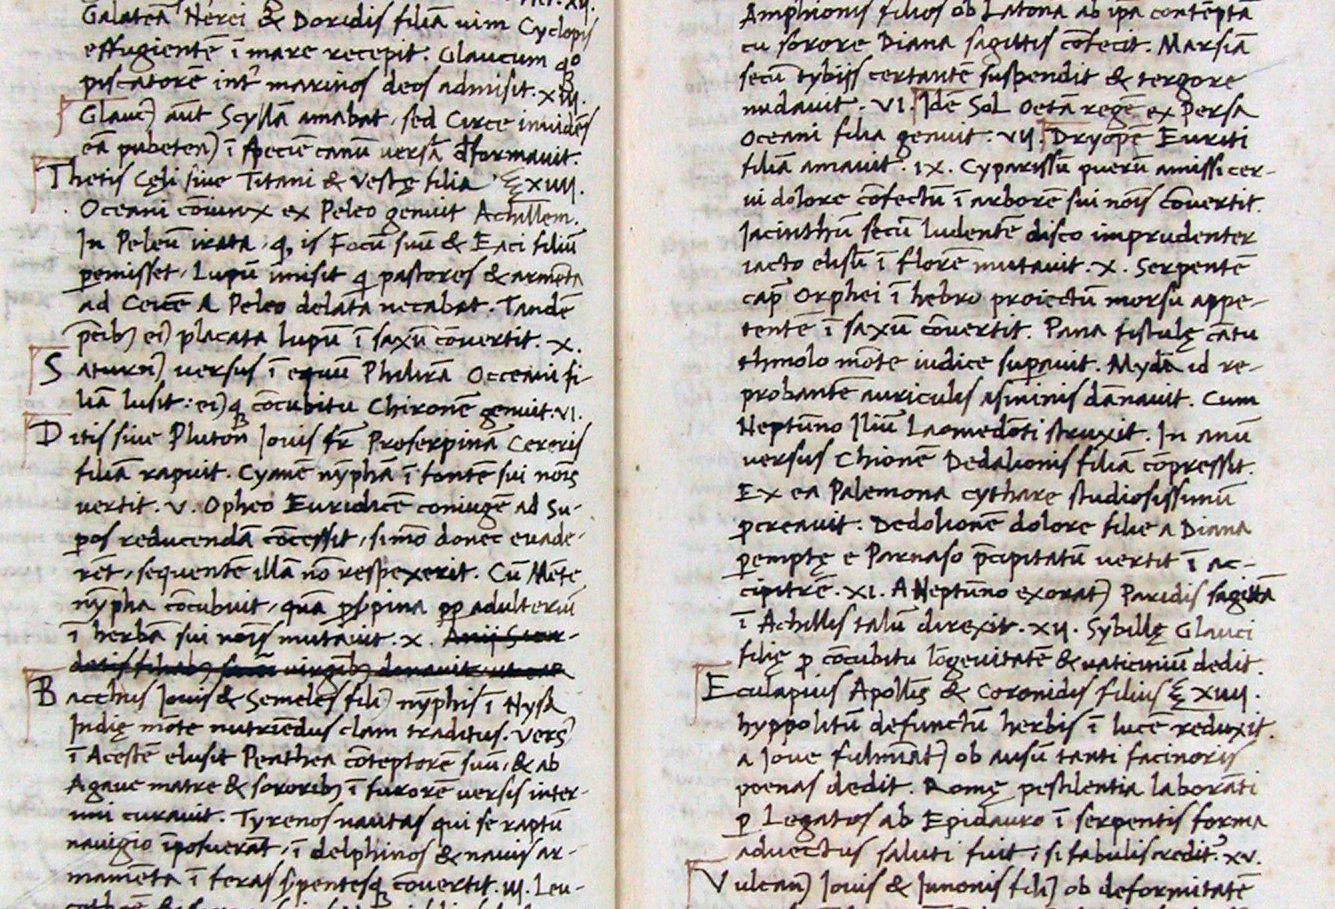 Galateā Nerei & Doridis filiā uim Cyclopis
effugientē ī mare recepit. Glaucum qº
piscatorē int' marinos deos admisit. XIII.
Glauc) aūt Scyllā amabat, sed Circe inuidēs
eā pubeten) ī speciē canū versā dformauit.
Thetis Cęli siue Titani & vestę filia XIIII.
Oceani cōiunx ex Peleo genuit Achillem.
In Peleū irata, q is Focū suū & Eaci filiū
pemisset, Lupū īmisit q pastores & armēta
ad Ceicē a Peleo delata necabat. Tandē
pcib) ei) placata lupū ī saxū cōvertit. X.
Saturn) versus ī equū Philirā Occeani fi-
liā lusit: ei)q cōcubitu Chironē genuit. VI.
Ditis siue Pluton Iouis fr̄. Proserpinā Cereris
filiā rapuit. Cyanē nypha ī fontē sui nois
vertit. V. Opheo Euridicē coniugē ad Su-
pos reducendā cōcessit, simō donec euade-
rēt, sequentē illā nō respexerit. Cū Mēte
nȳpha cōcubuit, quā psp̄pina pp adulteriū
ī herbā sui nois mutauit. X.
Bacchus Iouis & Semeles fili) nȳphis ī Nysa
Indię mōte nutriēdus clam traditus. vers)
ī Acestē elusit Penthea cōteptorē suū, & ab
Agaue matre & sororib) ī furorē versis inter-
imi curauit. Tyrenos nautas qui se raptū
nauigio īposuerāt, ī delphinos & nauis ar-
mamēta ī feras spentesq cōvertit. III. Leu-
Amphionis filios ob Latona ab ipa contēpta
cu sorore Diana sagittis cōfecit. Marsiā
secū tybijs certantē suspendit & tergore
nudauit. VI. Idē Sol Oetā regē ex Persa
Oceani filia genuit. VII. Dryopē Euriti
filiā amauit. IX. Cyparissū puerū amissi cer-
ui dolore cōfectū ī arborē sui nois cōvertit.
Iacinthū secū ludentē disco imprudenter
iacto elisū ī florē mutauit. X. Serpentē
cap' Orphei ī hebro proiectū morsu appe-
tentē ī saxū cōvertit. Pana fistulę cātu
thmolo mōte iudice supauit. Mydā id re-
probantē auriculis asininis dānauit. Cum
Neptūno Iliū Laomedōti struxit. In anū
versus Chionē Dedalionis filiā cōpressit.
Ex ea Palemona cythare studiosissimū
pcreauit. Dedolionē dolore filie a Diana
pemptę e Parnaso pcipitatū vertit ī ac-
cipitrē. XI. A Neptūno exorat) Paridis sagittā
ī Achillis talū direxit. XII. Sybillę Glauci
filię p cōcubitu lōgeuitatē & uaticiniū dedit.
Eculapius Apollis & Coronidis filius XIIII.
hyppolitū defunctū herbis ī lucē reduxit.
a Ioue fulmīat) ob ausū tanti facinoris
poenas dedit. Romę pestilentia laborāti
p Legatos ab Epidauro ī serpentis forma
aduectus saluti fuit, si fabulis credit. XV.
Vulcan) Iouis & Iunonis fili) ob deformitatē